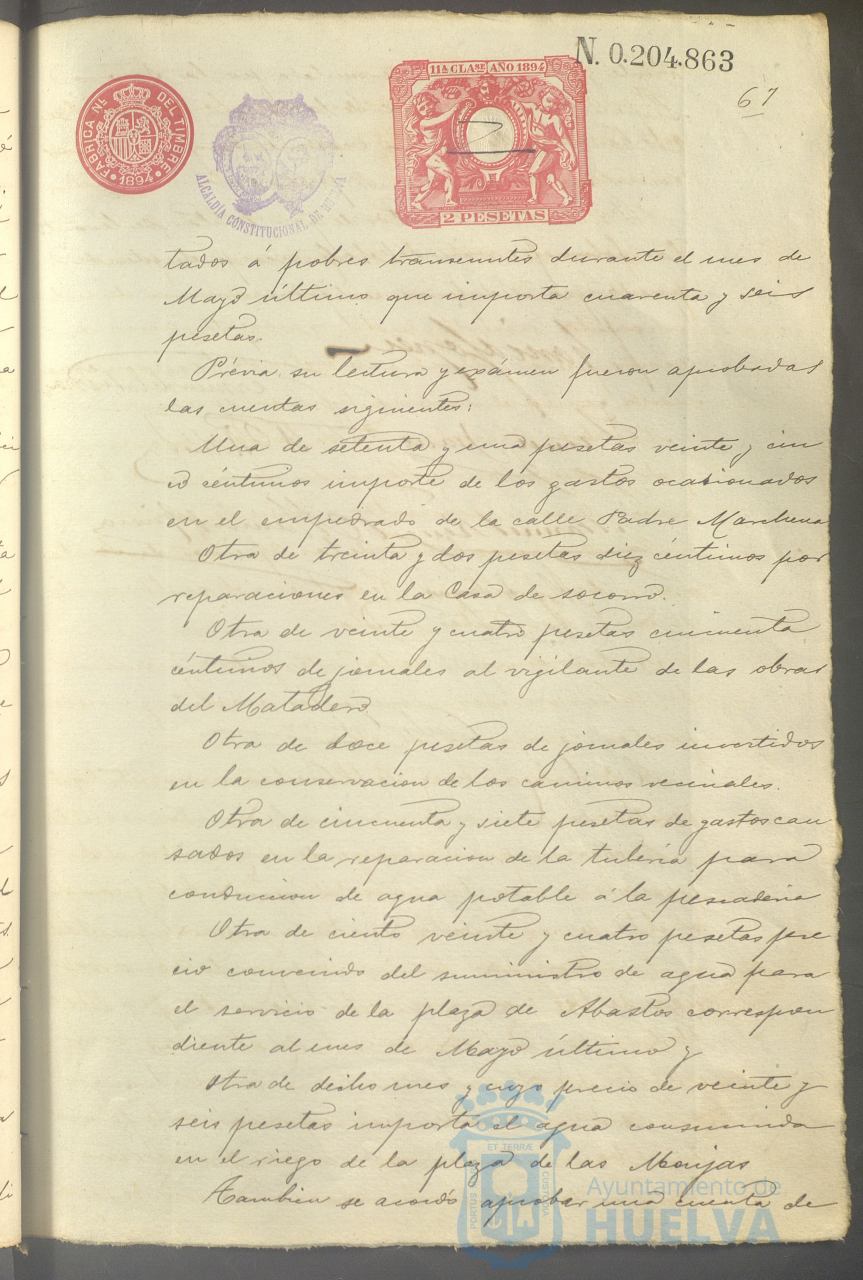 N. 0.204.863
11ª CLASE AÑO 1894
67
FABRICA NL. DEL TIMBRE
1894
ALCALDÍA CONSTITUCIONAL DE HUELVA
2 PESETAS
tados á pobres transeuntes durante el mes de
Mayo último que importa cuarenta y seis
pesetas.
Prévia su lectura y exámen fueron aprobadas
las cuentas siginentes:
Una de setenta y una pesetas veinte y cin
co céntimos importe de los gastos ocasionados
en el empedrado de la calle Padre Marchena
Otra de treinta y dos pesetas diez céntimos por
reparaciones en la Casa de socorro.
Otra de veinte y cuatro pesetas cincuenta
céntimos de jornales al vigilante de las obras
del Matadero
Otra de doce pesetas de jornales invertidos
en la conservacion de los caminos vecinales.
Otra de cincuenta y siete pesetas de gastos cau
sados en la reparacion de la tubería para
conduccion de agua potable á la pescaderia
Otra de ciento veinte y cuatro pesetas pre
cio convenido del suministro de agua para
el servicio de la plaza de Abastos correspon
diente al mes de Mayo último y
Otra de dicho mes y cuyo precio de veinte y
seis pesetas importa el agua consumida
en el riego de la plaza de las Monjas
Tambien se acordó aprobar una cuenta de
ET TERRÆ
PORTUS
CUSTODIA
Ayuntamiento de
HUELVA